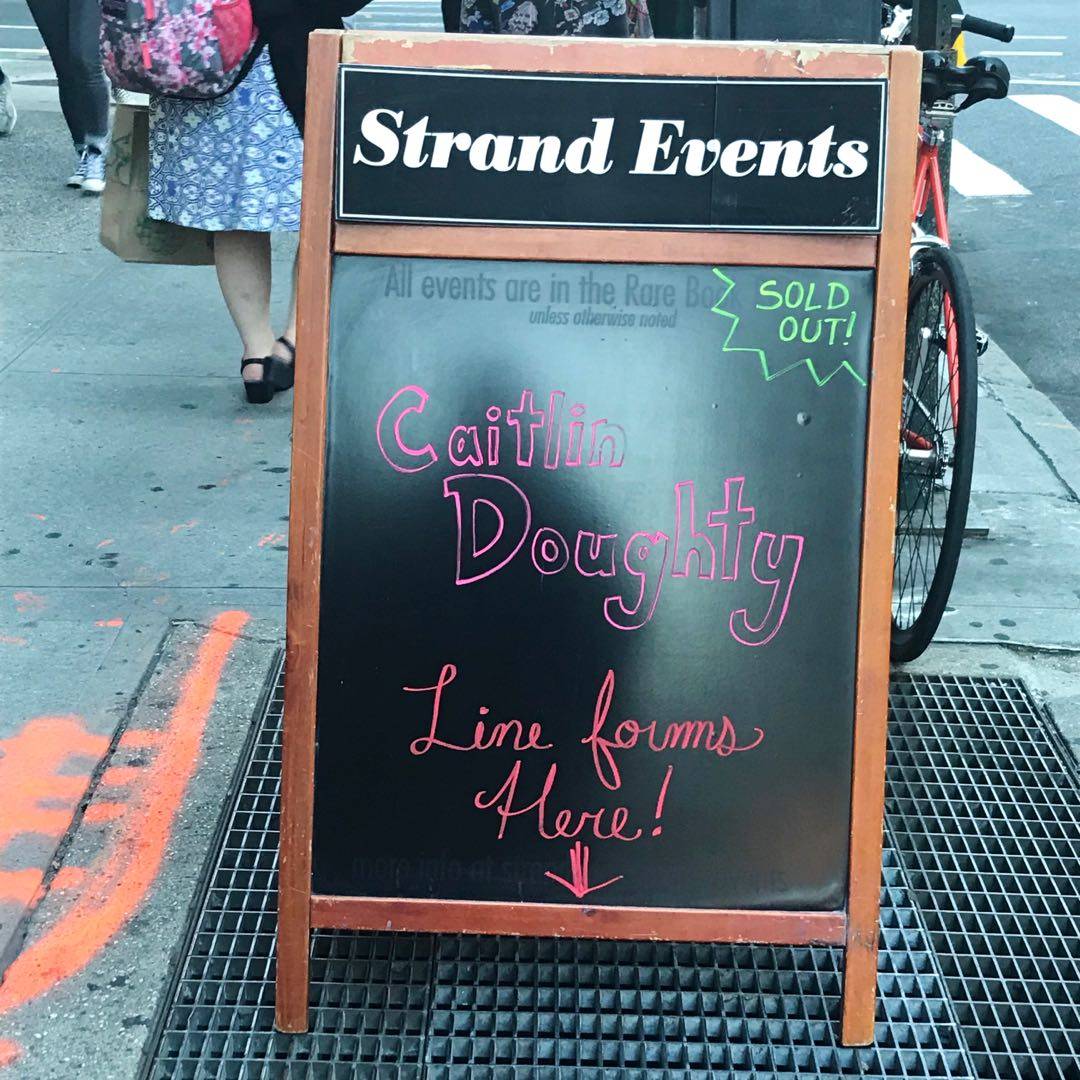 Strand Events
All events are in the Rare
unless otherwise noted
SOLD
OUT!
Caitlin
Doughty
Line forms
Here!
more info at